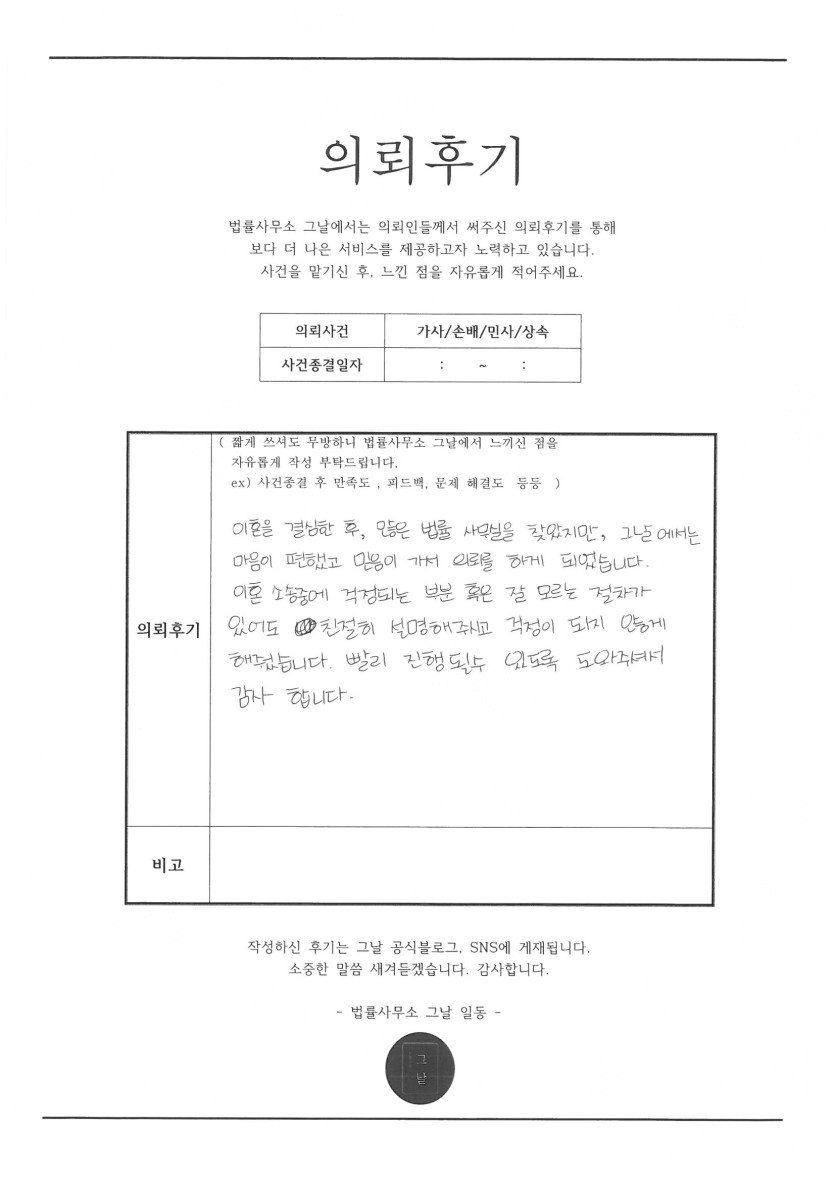 의뢰후기
법률사무소 그날에서는 의뢰인들께서 써주신 의뢰후기를 통해
보다 더 나은 서비스를 제공하고자 노력하고 있습니다.
사건을 맡기신 후, 느낀 점을 자유롭게 적어주세요.
의뢰사건 가사/손배/민사/상속
사건종결일자 : ~ :
( 짧게 쓰셔도 무방하니 법률사무소 그날에서 느끼신 점을
자유롭게 작성 부탁드립니다.
ex) 사건종결 후 만족도 , 피드백, 문제 해결도 등등 )
의뢰후기
이혼을 결심한 후, 많은 법률 사무실을 찾았지만, 그날에서는
마음이 편했고 믿음이 가서 의뢰를 하게 되었습니다.
이혼 소송중에 걱정되는 부분 혹은 잘 모르는 절차가
있어도 친절히 설명해주시고 걱정이 되지 않게
해주셨습니다. 빨리 진행될수 있도록 도와주셔서
감사 합니다.
비고
작성하신 후기는 그날 공식블로그, SNS에 게재됩니다.
소중한 말씀 새겨듣겠습니다. 감사합니다.
- 법률사무소 그날 일동 -
그
날